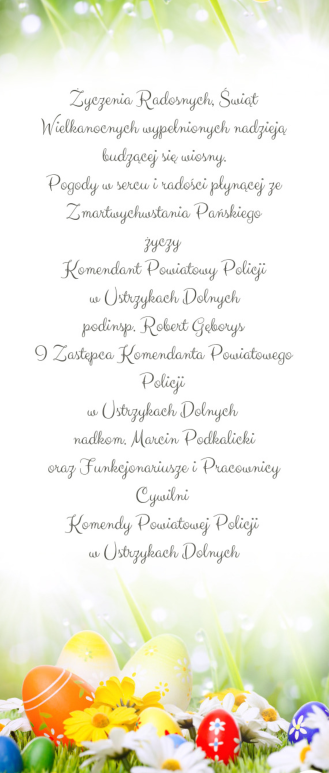 Życzenia Radosnych, Świąt
Wielkanocnych wypełnionych nadzieją
budzącej się wiosny.
Pogody w sercu i radości płynącej ze
Zmartwychwstania Pańskiego
życzy
Komendant Powiatowy Policji
w Ustrzykach Dolnych
podinsp. Robert Gęborys
9 Zastępca Komendanta Powiatowego
Policji
w Ustrzykach Dolnych
nadkom. Marcin Podkalicki
oraz Funkcjonariusze i Pracownicy
Cywilni
Komendy Powiatowej Policji
w Ustrzykach Dolnych